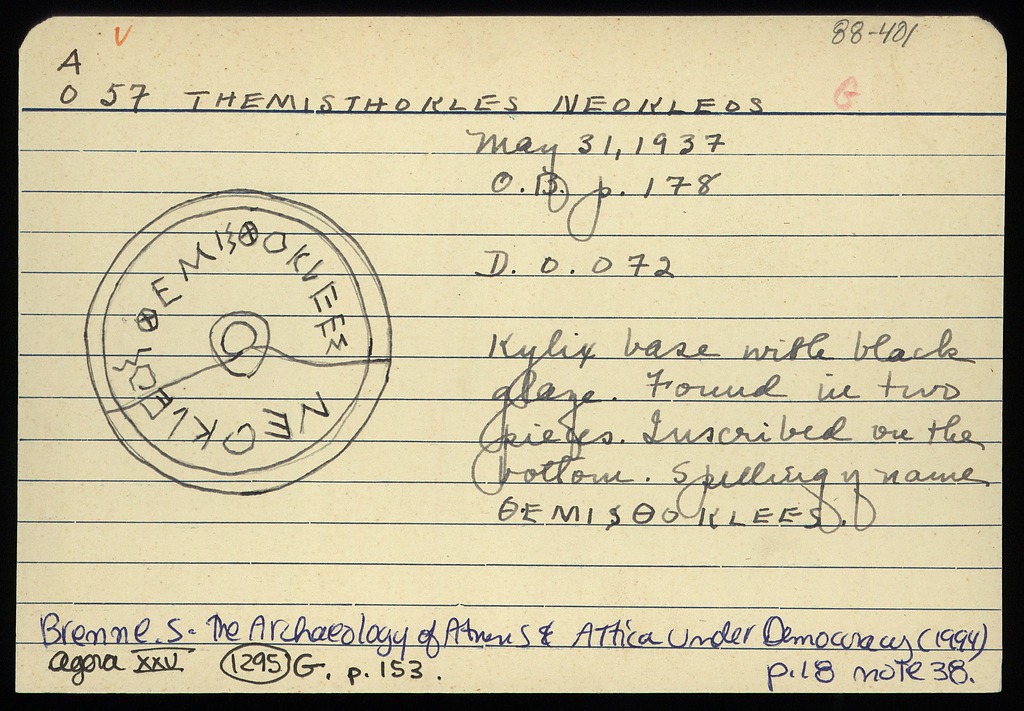 88-401
V
A
O 57 THEMISTHOKLES NEOKLEOS G
May 31, 1937
O.B. p. 178
D. O. 072
ΘEMIΣΘOKLEEΣ
NEOKLEOΣ
Kylix base with black
glaze. Found in two
pieces. Inscribed on the
bottom. Spelling of name
ΘEMIΣΘOKLEES.
Brenne. S- The Archaeology of Athens & Attica under Democracy (1994)
p.18 note 38.
agora XXV 1295 G. p. 153.